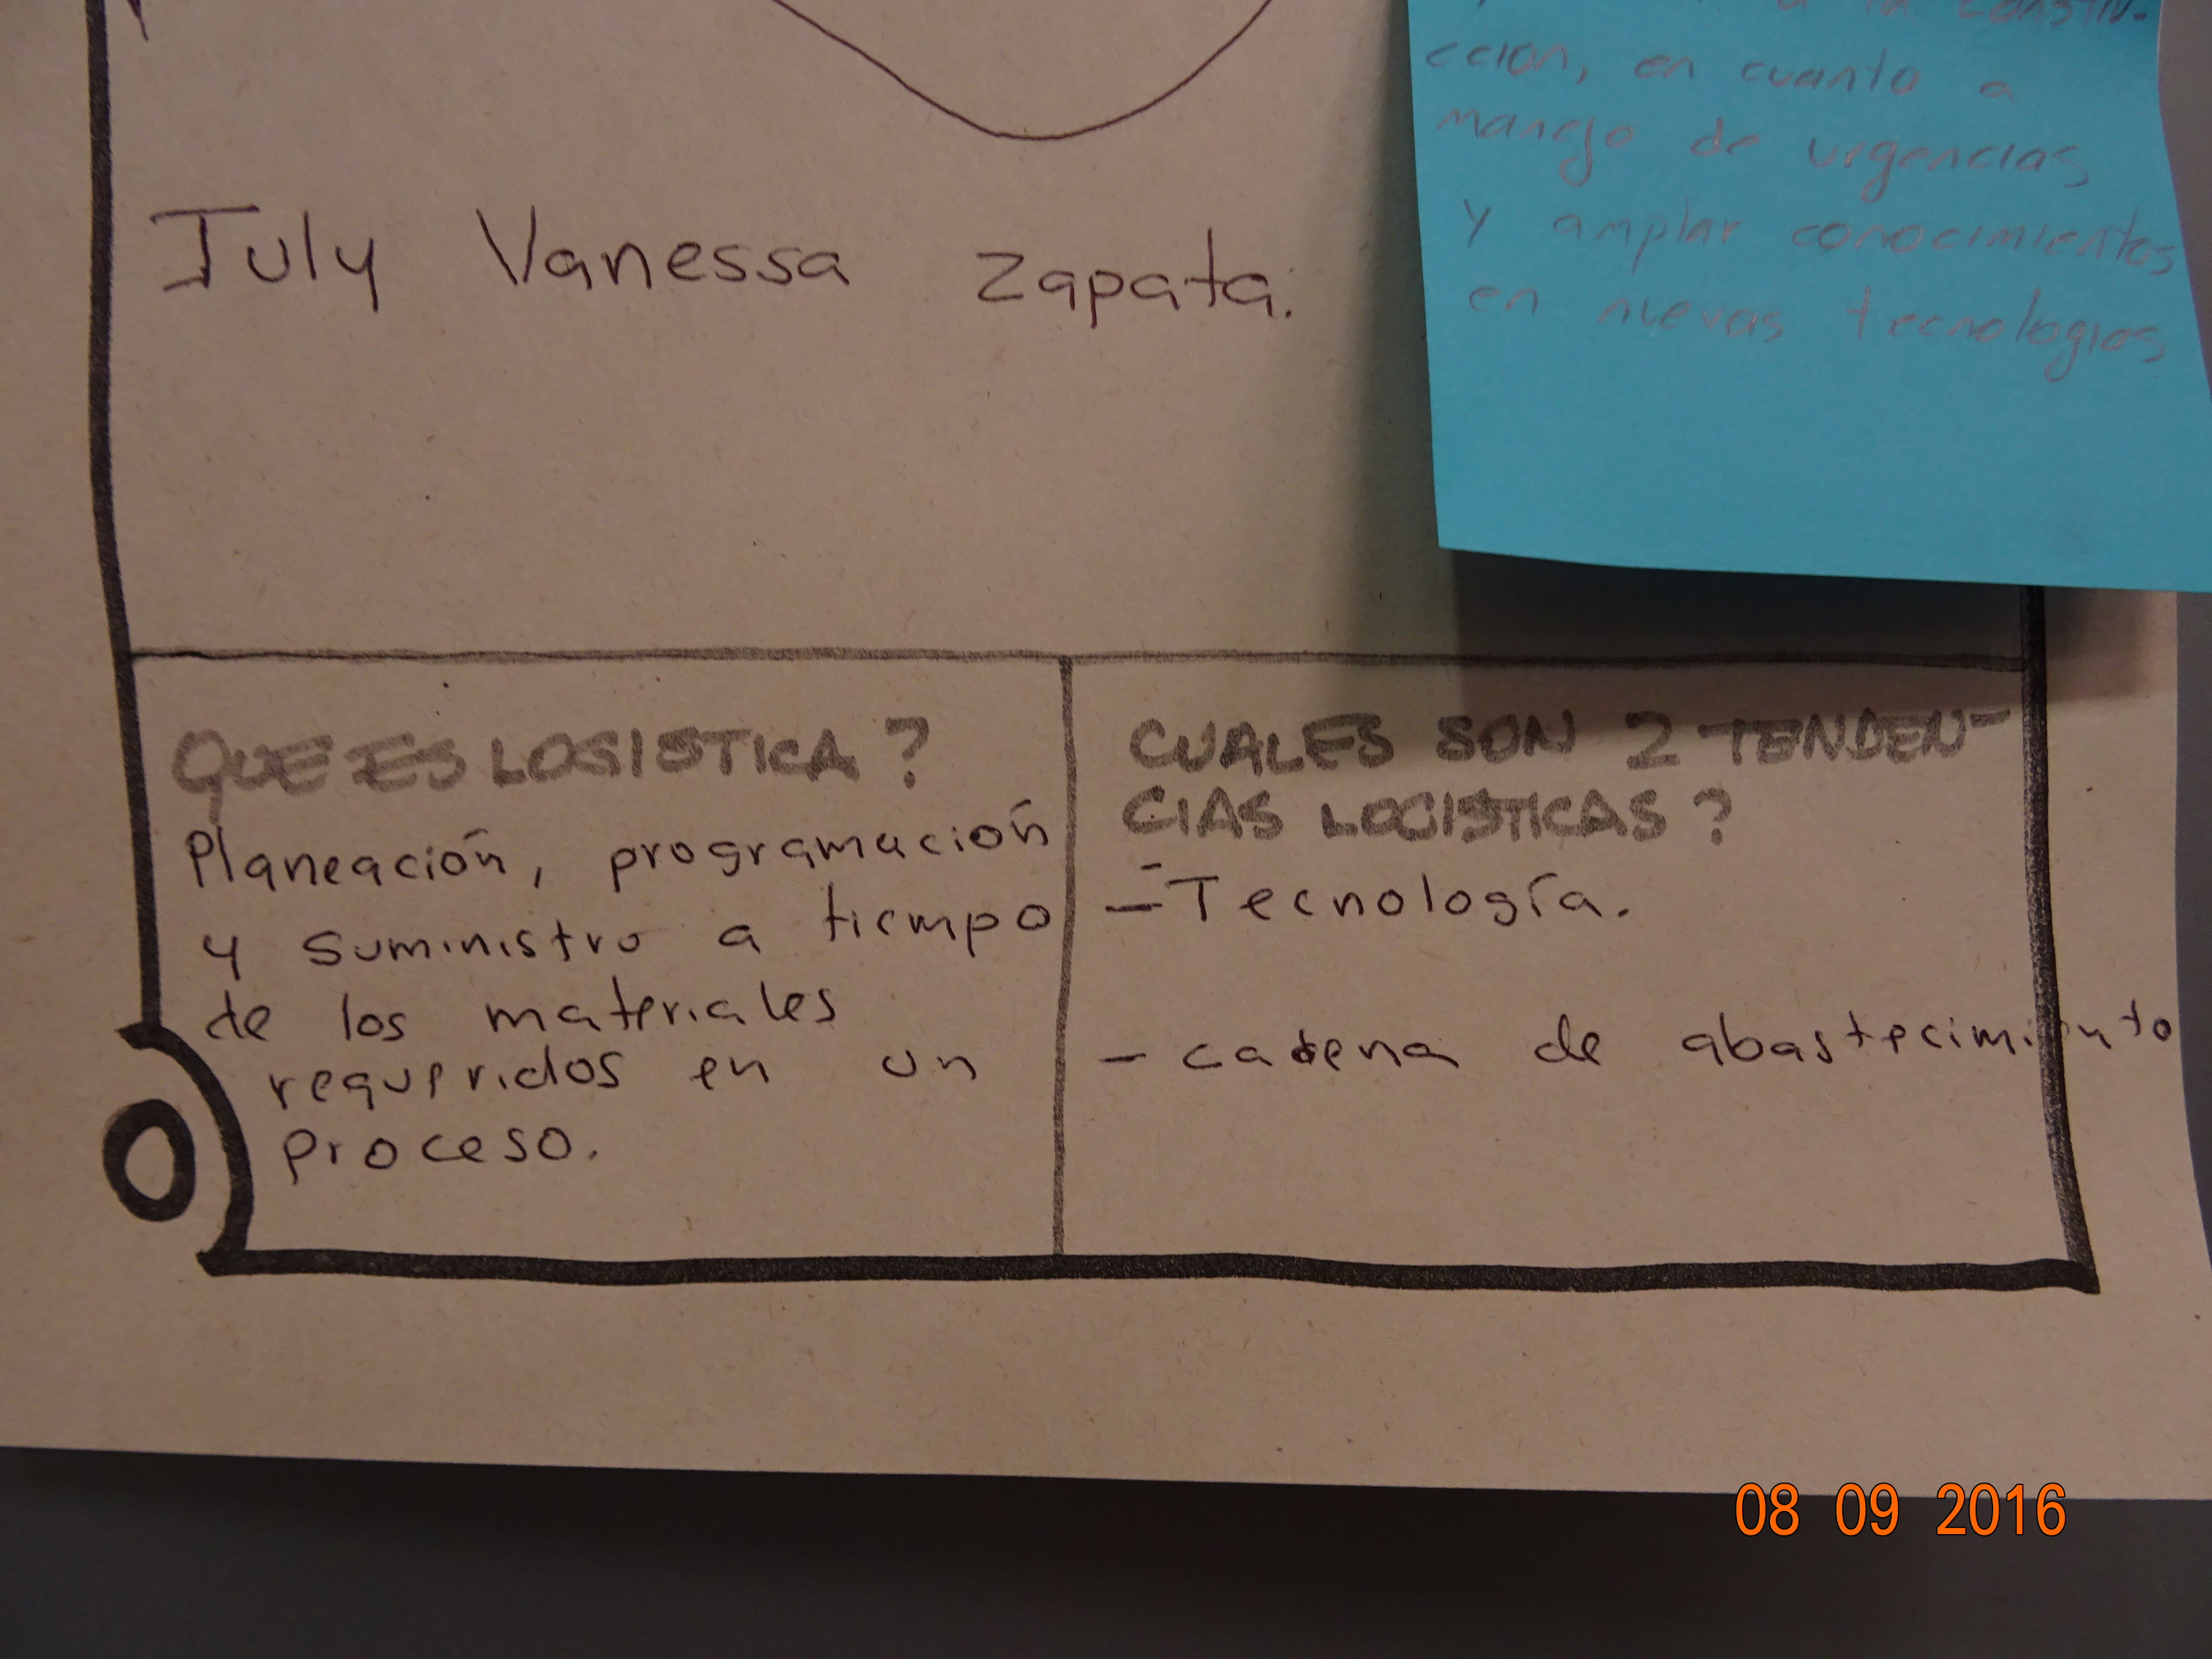 a la constru-
cción, en cuanto a
manejo de urgencias
y ampliar conocimientos
en nuevas tecnologías
July Vanessa Zapata.
QUE ES LOGISTICA?
Planeación, programación
y suministro a tiempo
de los materiales
requeridos en un
proceso.
CUALES SON 2 TENDEN-
CIAS LOGISTICAS?
- Tecnología.
- cadena de abastecimiento
08 09 2016